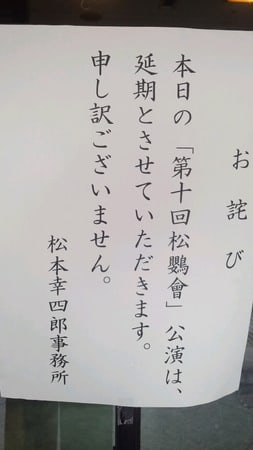 お詫び
本日の「第十回松鸚會」公演は、
延期とさせていただきます。
申し訳ございません。
松本幸四郎事務所